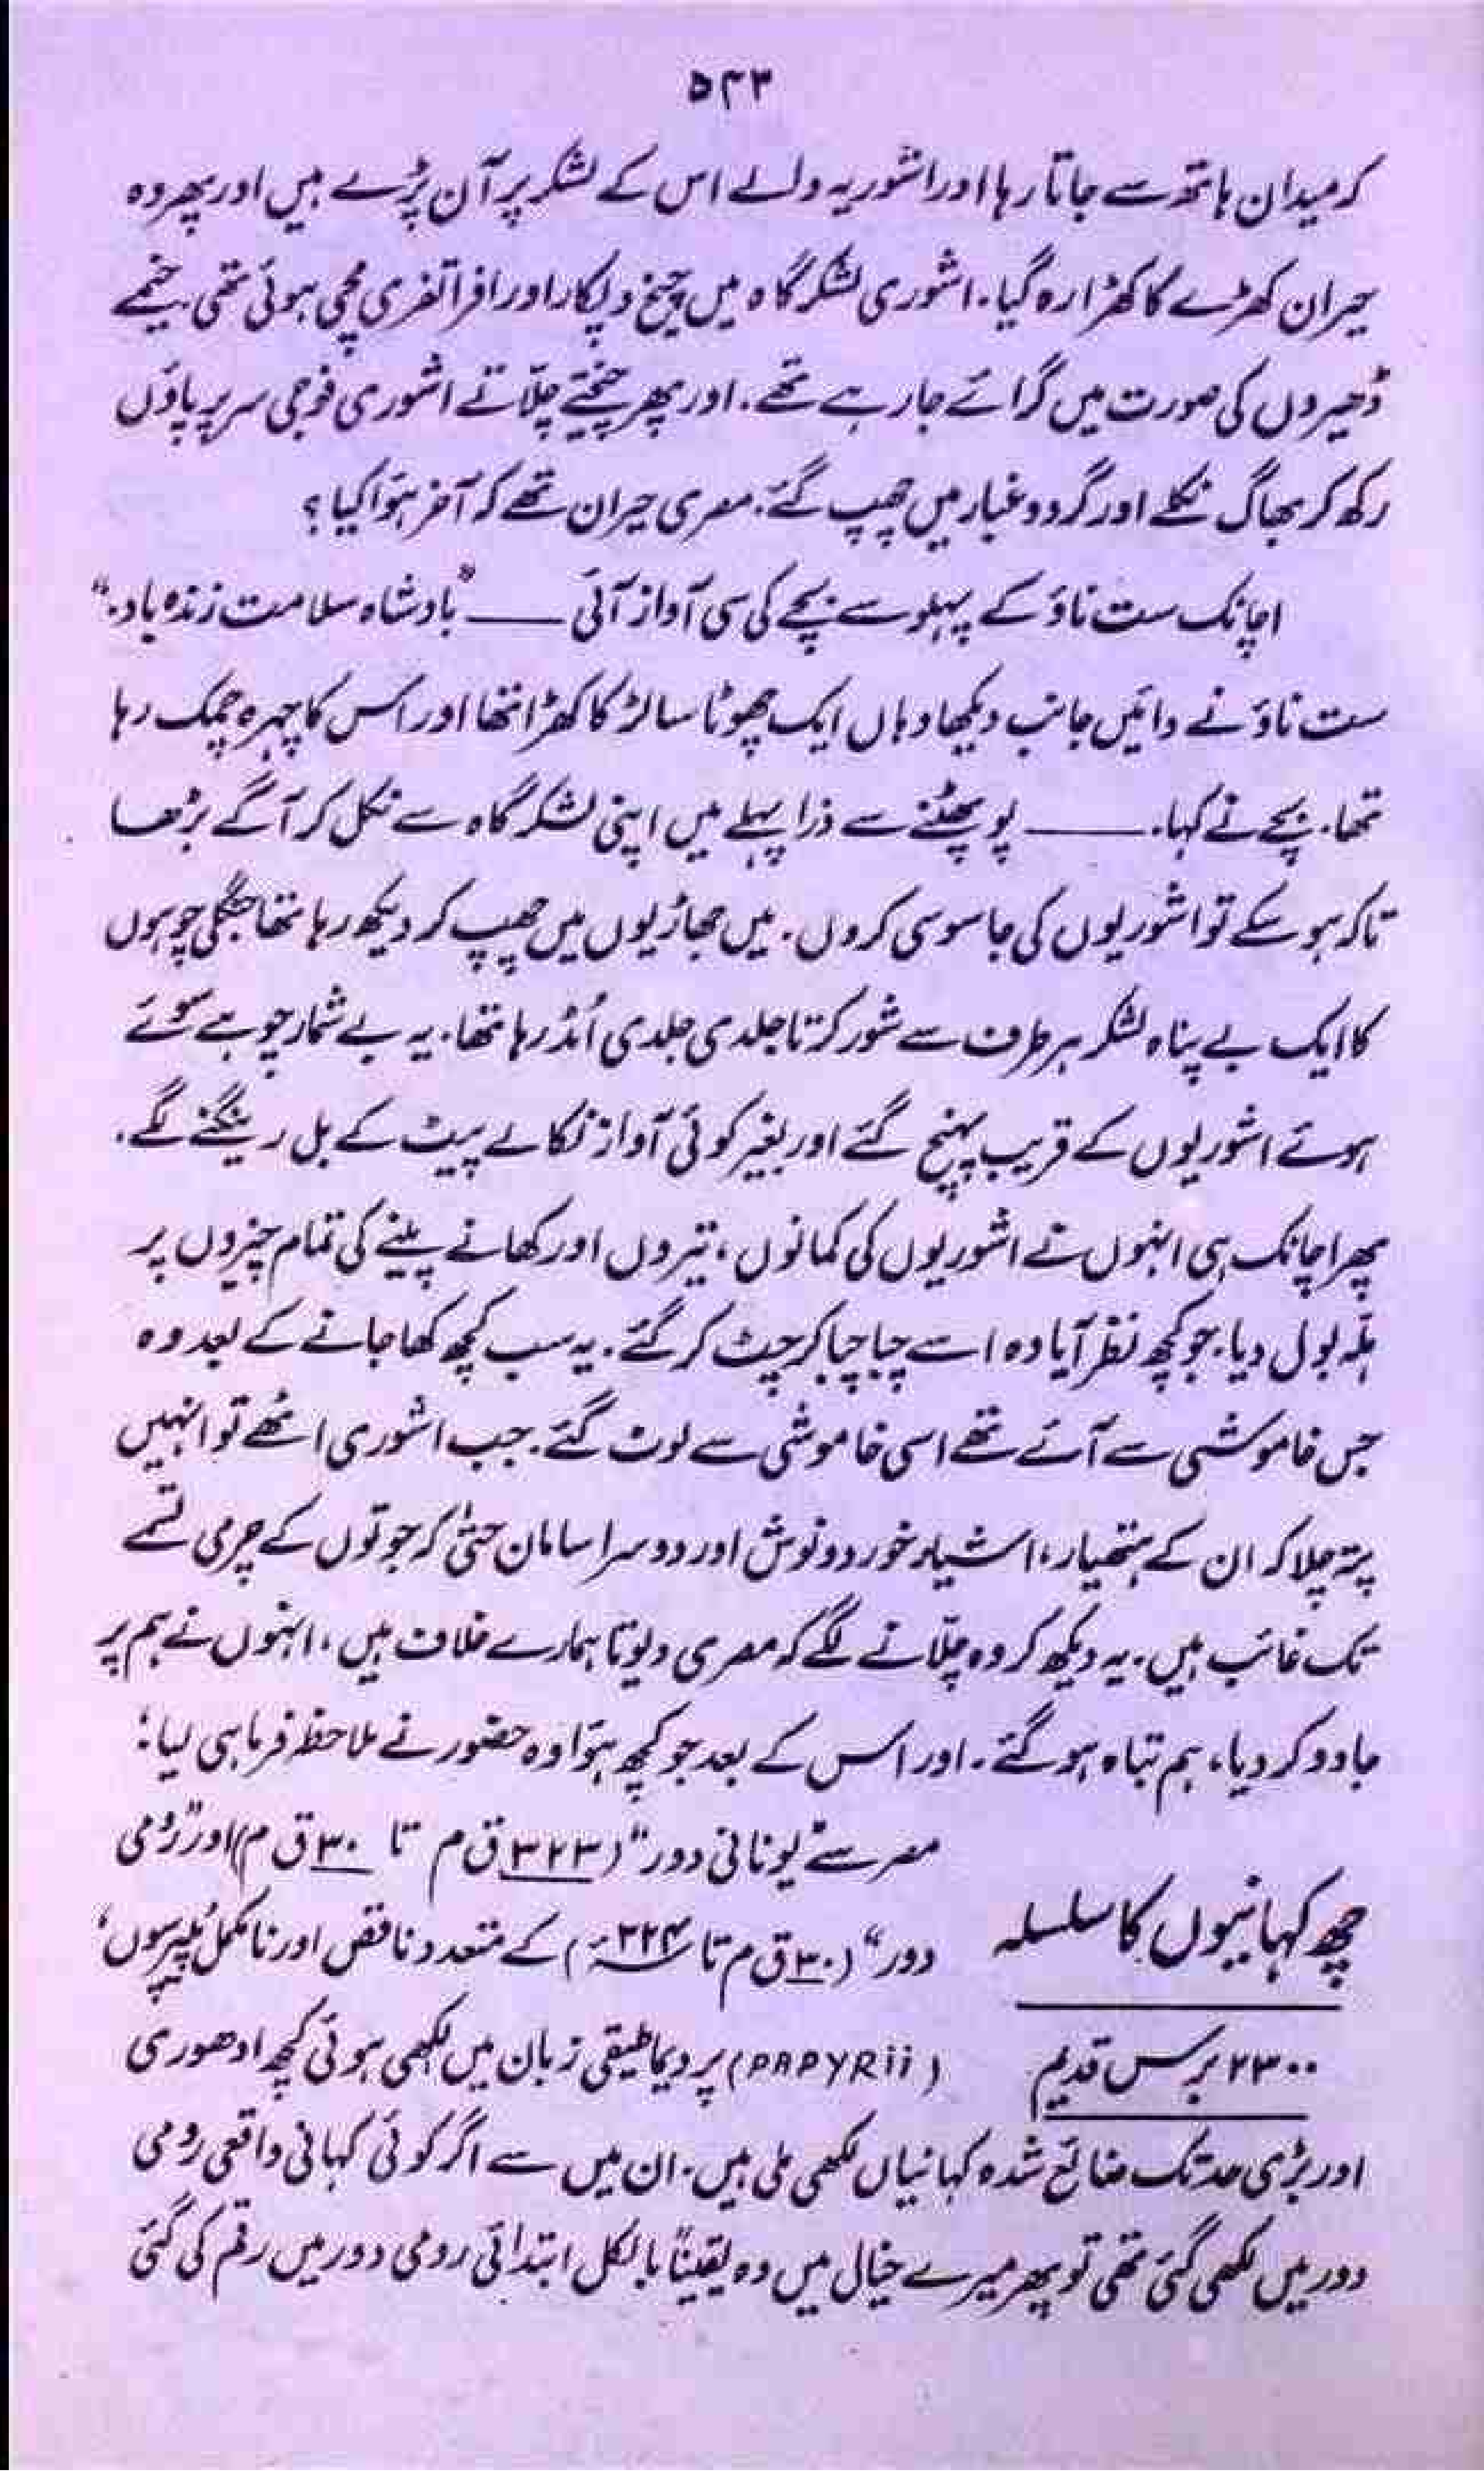 ۵۴۳
کہ میدان ہاتھ سے جاتا رہا اور اشوریہ والے اس کے لشکر پر آن پڑے ہیں اور پھر وہ
حیران کھڑے کا کھڑا رہ گیا۔ اشوری لشکر گاہ میں چیخ و پکار اور افراتفری مچی ہوئی تھی۔ خیمے
ڈھیروں کی صورت میں گرائے جا رہے تھے۔ اور پھر چیختے چلّاتے اشوری فوجی سر پر پاؤں
رکھ کر بھاگ نکلے اور گرد و غبار میں چھپ گئے۔ مصری حیران تھے کہ آخر ہوَا کیا؟
اچانک ست ناؤ کے پہلو سے بچے کی سی آواز آئی ــــــ "بادشاہ سلامت زندہ باد۔"
ست ناؤ نے دائیں جانب دیکھا وہاں ایک چھوٹا سا لڑکا کھڑا تھا اور اس کا چہرہ چمک رہا
تھا۔ بچے نے کہا۔ ــــــ پو پھٹنے سے ذرا پہلے میں اپنی لشکر گاہ سے نکل کر آگے بڑھا
تاکہ ہو سکے تو اشوریوں کی جاسوسی کروں۔ میں جھاڑیوں میں چھپ کر دیکھ رہا تھا جنگلی چوہوں
کا ایک بے پناہ لشکر ہر طرف سے شور کرتا جلدی جلدی اُمڈ رہا تھا۔ یہ بے شمار چوہے سوئے
ہوئے اشوریوں کے قریب پہنچ گئے اور بغیر کوئی آواز نکالے پیٹ کے بل رینگنے لگے۔
پھر اچانک ہی انہوں نے اشوریوں کی کمانوں، تیروں اور کھانے پینے کی تمام چیزوں پر
ہلّہ بول دیا۔ جو کچھ نظر آیا وہ اسے چبا چبا کر چٹ کر گئے۔ یہ سب کچھ کھا جانے کے بعد وہ
جس خاموشی سے آئے تھے اسی خاموشی سے لوٹ گئے۔ جب اشوری اٹھے تو انہیں
پتہ چلا کہ ان کے ہتھیار، اشیاء خورد و نوش اور دوسرا سامان حتیٰ کہ جوتوں کے چرمی تسمے
تک غائب ہیں۔ یہ دیکھ کر وہ چلّانے لگے کہ مصری دیوتا ہمارے خلاف ہیں، انہوں نے ہم پر
جادو کر دیا، ہم تباہ ہو گئے۔ اور اس کے بعد جو کچھ ہوَا وہ حضور نے ملاحظہ فرما ہی لیا؛
چھ کہانیوں کا سلسلہ
۲۳۰۰ برس قدیم
مصر سے "یونانی دور" (۳۲۳ ق م تا ۳۰ ق م) اور "رومی
دور" (۳۰ ق م تا ۲۲۴ء) کے متعدد ناقص اور نامکمل پیپرسوں،
(PAPYRii) پر دیماطیقی زبان میں لکھی ہوئی کچھ ادھوری
اور بڑی حد تک ضائع شدہ کہانیاں لکھی ملی ہیں۔ ان میں سے اگر کوئی کہانی واقعی رومی
دور میں لکھی گئی تھی تو پھر میرے خیال میں وہ یقیناً بالکل ابتدائی رومی دور میں رقم کی گئی